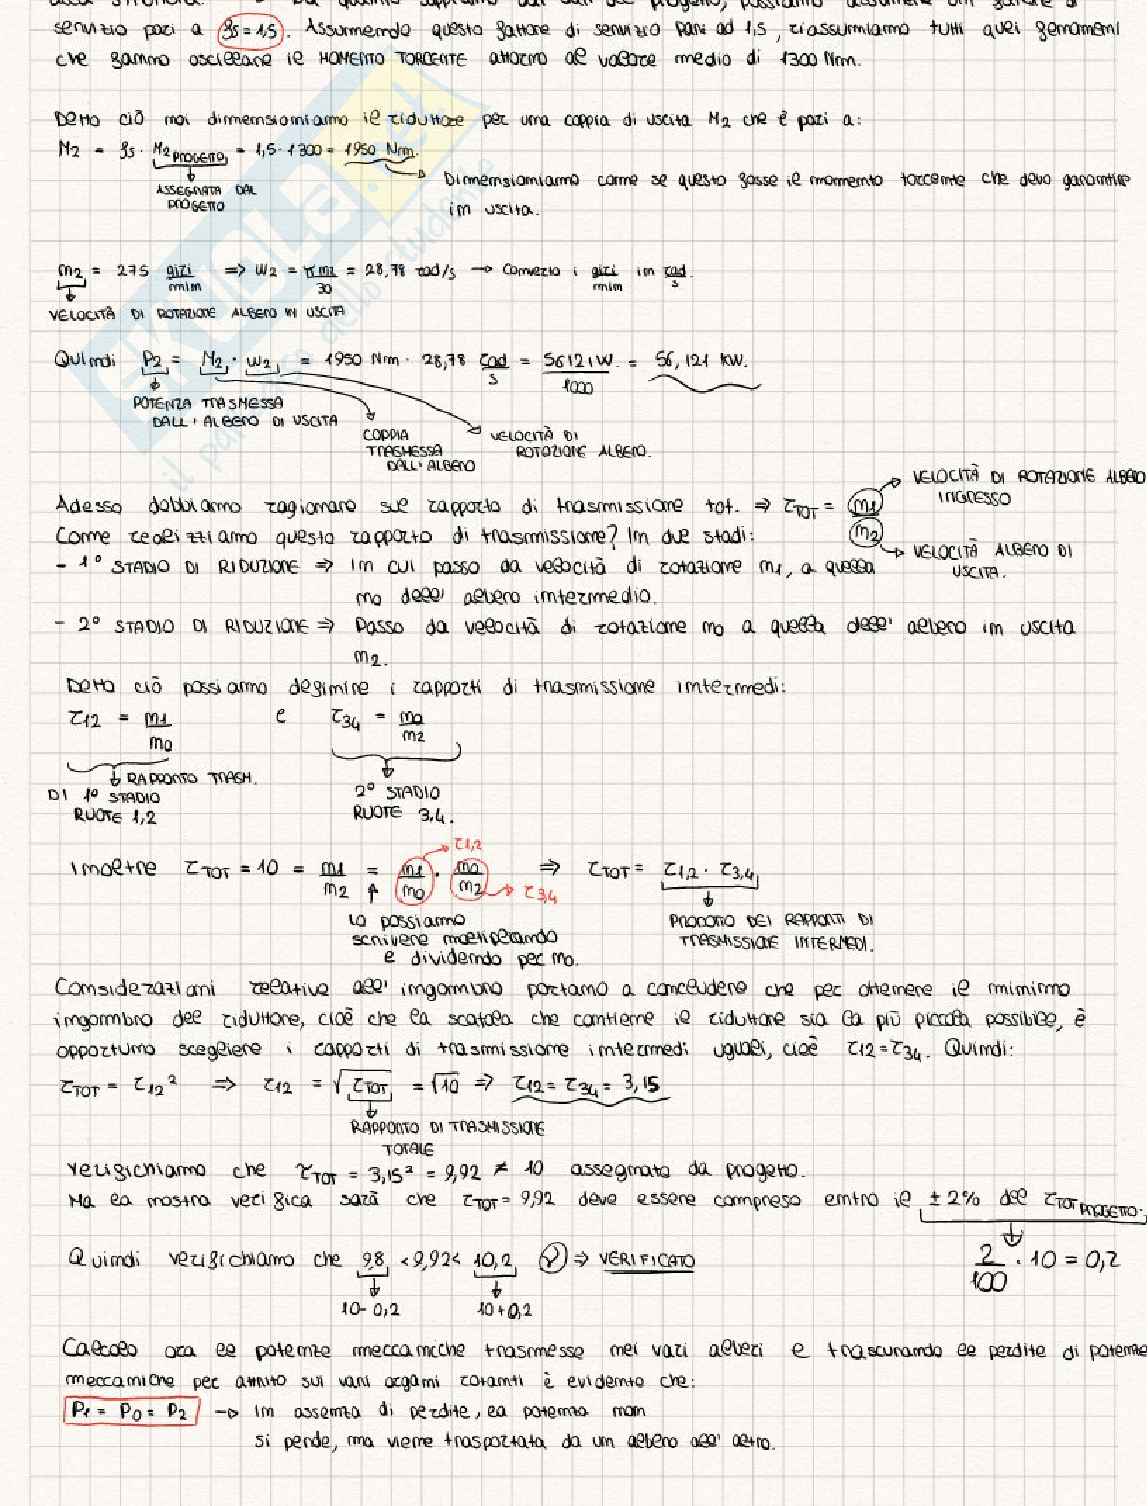 servizio pari a fs = 1,5. Assumendo questo fattore di servizio pari ad 1,5, riassumiamo tutti quei fenomeni
che fanno oscillare il MOMENTO TORCENTE attorno al valore medio di 1300 Nm.
Detto ciò noi dimensioniamo il riduttore per una coppia di uscita M2 che è pari a:
M2 = fs · M2 PROGETTO = 1,5 · 1300 = 1950 Nm.
ASSEGNATA DAL
PROGETTO
Dimensioniamo come se questo fosse il momento torcente che devo garantire
in uscita.
n2 = 275 giri/min => ω2 = πn2/30 = 28,78 rad/s → Converto i giri/min in rad/s.
VELOCITÀ DI ROTAZIONE ALBERO IN USCITA
Quindi P2 = M2 · ω2 = 1950 Nm · 28,78 rad/s = 56121W/1000 = 56,121 KW.
POTENZA TRASMESSA
DALL'ALBERO DI USCITA
COPPIA
TRASMESSA
DALL'ALBERO
VELOCITÀ DI
ROTAZIONE ALBERO.
VELOCITÀ DI ROTAZIONE ALBERO
INGRESSO
Adesso dobbiamo ragionare sul rapporto di trasmissione tot. ⇒ τTOT = n1/n2
VELOCITÀ ALBERO DI
USCITA.
Come realizziamo questo rapporto di trasmissione? In due stadi:
- 1° STADIO DI RIDUZIONE ⇒ In cui passo da velocità di rotazione n1, a quella
n0 dell' albero intermedio.
- 2° STADIO DI RIDUZIONE ⇒ Passo da velocità di rotazione n0 a quella dell' albero in uscita
n2.
Detto ciò possiamo definire i rapporti di trasmissione intermedi:
τ12 = n1/n0 e τ34 = n0/n2
RAPPORTO TRASM.
DI 1° STADIO
RUOTE 1,2
2° STADIO
RUOTE 3,4.
Inoltre τTOT = 10 = n1/n2 = n1/n0 · n0/n2 ⇒ τTOT = τ1,2 · τ3,4
τ1,2
τ3,4
Lo possiamo
scrivere moltiplicando
e dividendo per n0.
PRODOTTO DEI RAPPORTI DI
TRASMISSIONE INTERMEDI.
Considerazioni relative all' ingombro portano a concludere che per ottenere il minimo
ingombro del riduttore, cioè che la scatola che contiene il riduttore sia la più piccola possibile, è
opportuno scegliere i rapporti di trasmissione intermedi uguali, cioè τ12 = τ34. Quindi:
τTOT = τ12² ⇒ τ12 = √τTOT = √10 ⇒ τ12 = τ34 = 3,15
RAPPORTO DI TRASMISSIONE
TOTALE
Verifichiamo che τTOT = 3,15² = 9,92 ≠ 10 assegnato da progetto.
Ma la nostra verifica sarà che τTOT = 9,92 deve essere compreso entro il ± 2% del τTOT PROGETTO.
2/100 · 10 = 0,2
Quindi verifichiamo che 9,8 < 9,92 < 10,2 ⇒ VERIFICATO
10 - 0,2
10 + 0,2
Calcolo ora le potenze meccaniche trasmesse nei vari alberi e trascurando le perdite di potenze
meccaniche per attrito sui vari organi rotanti è evidente che:
P1 = P0 = P2 → In assenza di perdite, la potenza non
si perde, ma viene trasportata da un albero all' altro.
SKUOLA.net
il paradiso dello studente